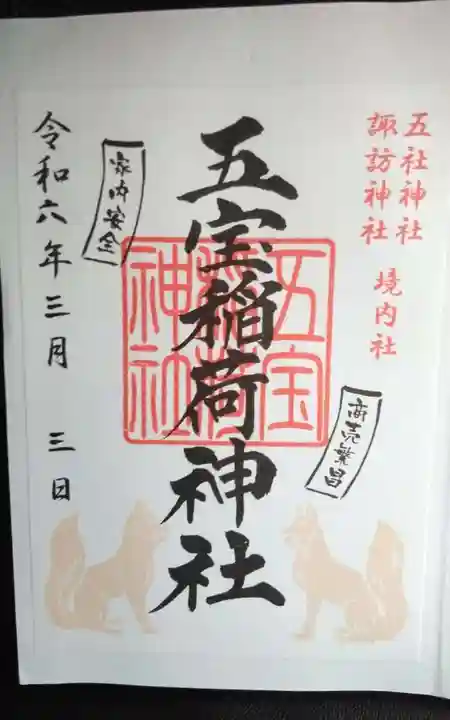 五社神社
諏訪神社 境内社
五宝稲荷神社
五宝
稲荷
神社
商売繁昌
家内安全
令和六年三月 三日